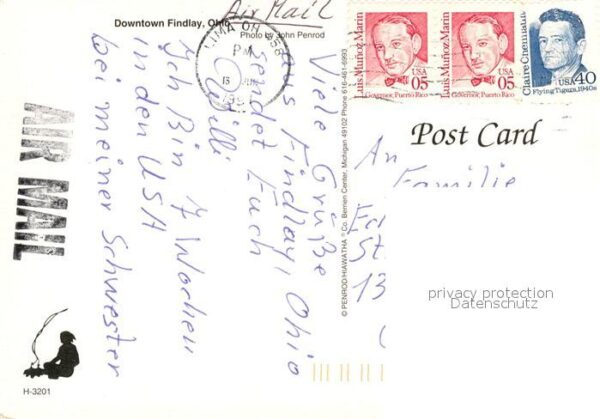 Downtown Findlay, Ohio
Photo by John Penrod
Air Mail
LIMA OH 458
PM
Luis Muñoz Marin
USA
05
Governor, Puerto Rico
Luis Muñoz Marin
USA
05
Governor, Puerto Rico
Claire Chennault
USA 40
Flying Tigers, 1940s
Post Card
Viele Grüße
aus Findlay, Ohio
sendet Euch
Willi
Ich Bin 7 Wochen
in den USA
bei meiner Schwester
AIR MAIL
© PENROD/HIAWATHA ® Co. Berrien Center, Michigan 49102 Phone 616-461-6993
An
Familie
St
13
privacy protection
Datenschutz
H-3201